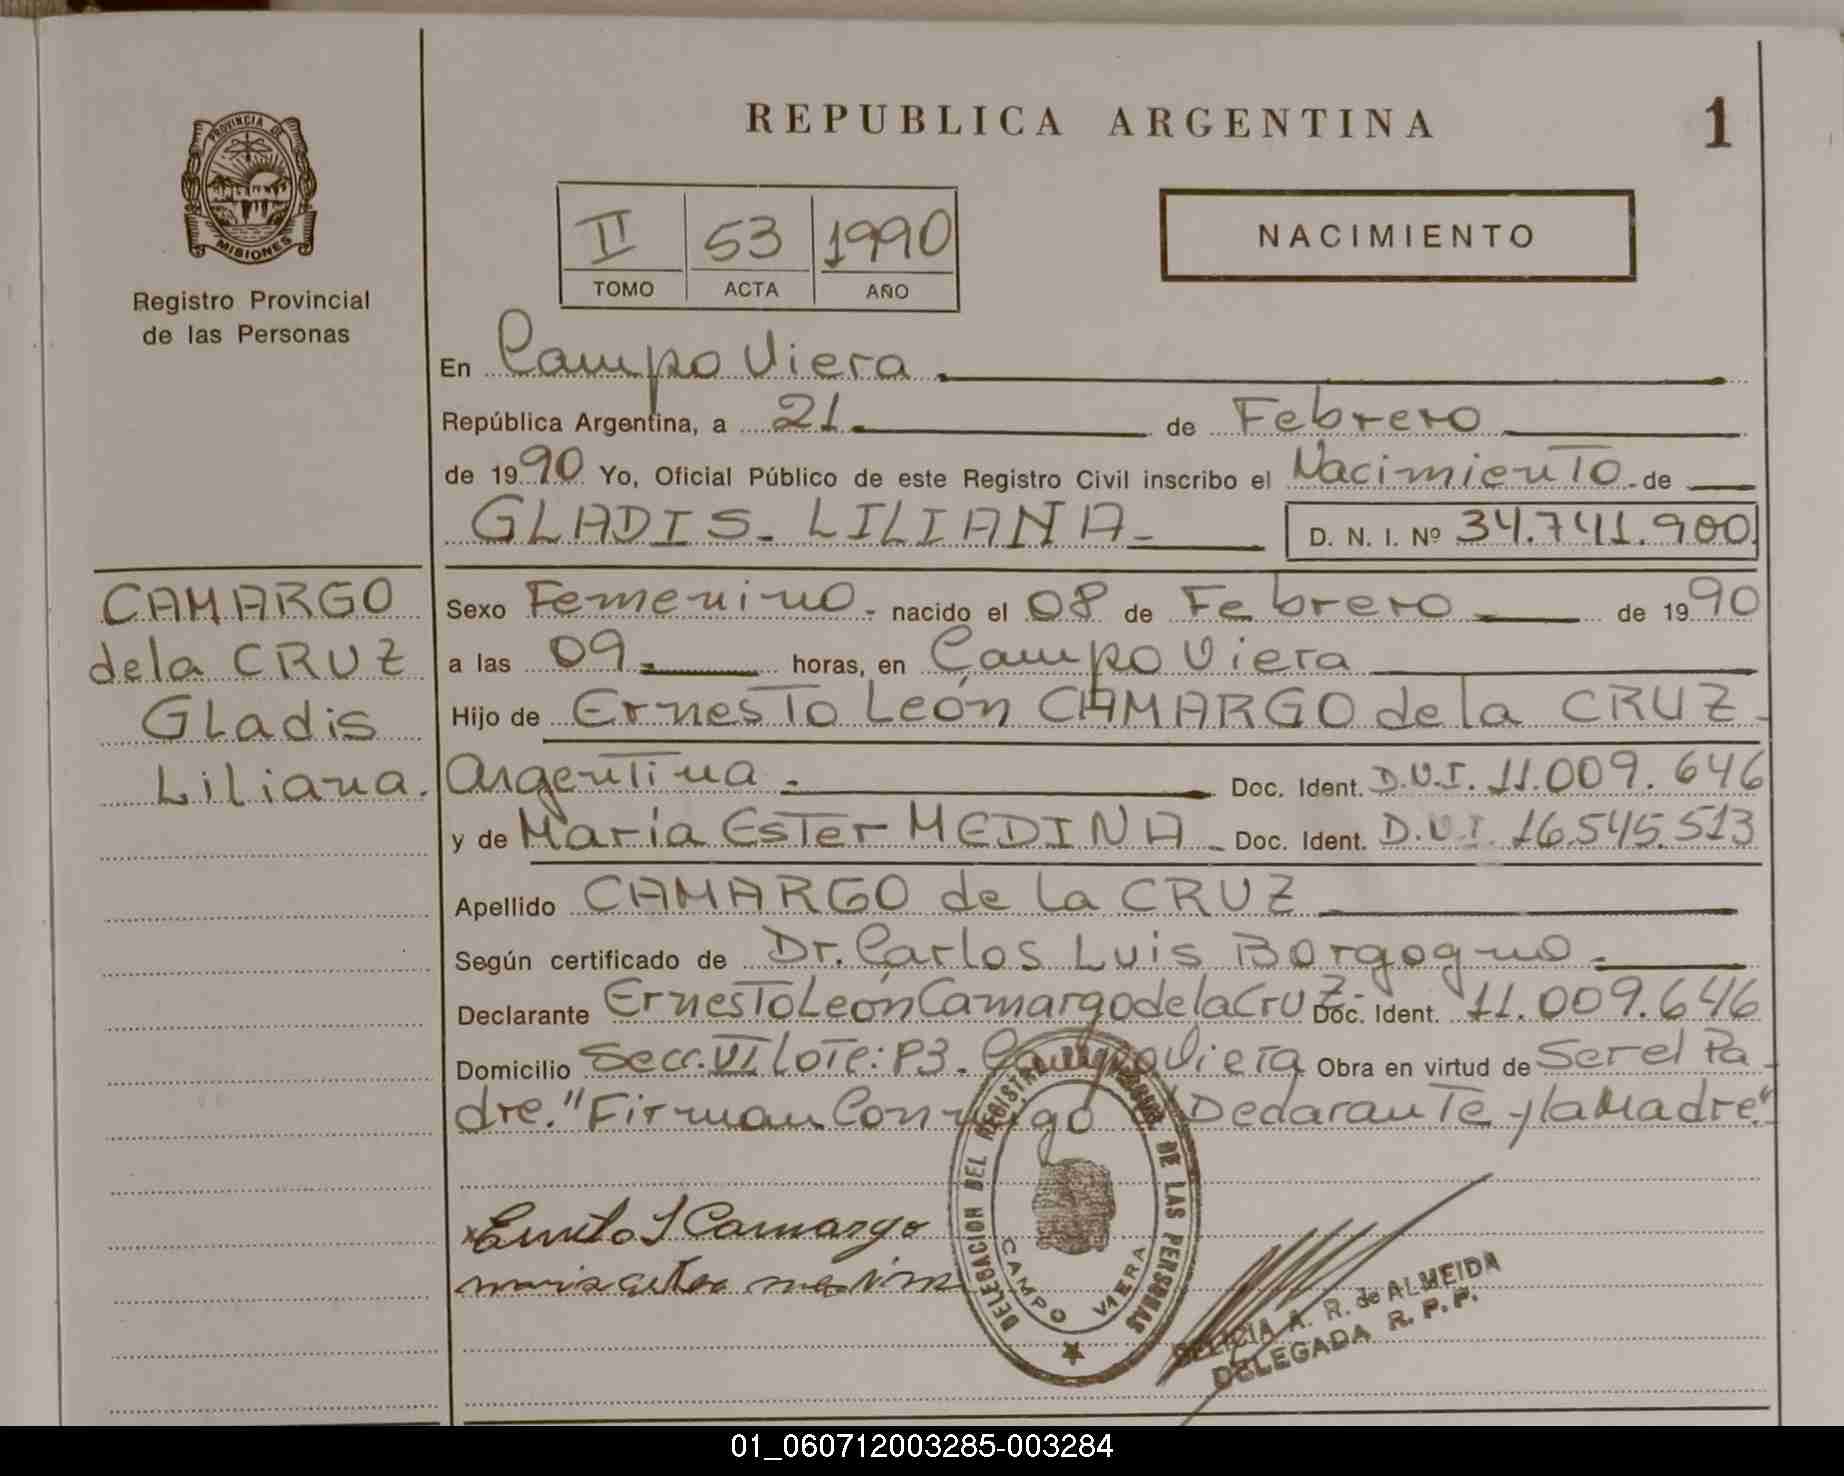 REPUBLICA ARGENTINA
1
PROVINCIA DE
MISIONES
Registro Provincial
de las Personas
II 53 1990
TOMO ACTA AÑO
NACIMIENTO
En Campo Viera
República Argentina, a 21 de Febrero
de 1990 Yo, Oficial Público de este Registro Civil inscribo el Nacimiento de
GLADIS LILIANA D. N. I. Nº 34.741.900
CAMARGO
de la CRUZ
Gladis
Liliana.
Sexo Femenino nacido el 08 de Febrero de 1990
a las 09 horas, en Campo Viera
Hijo de Ernesto León CAMARGO de la CRUZ
Argentina Doc. Ident. D.N.I. 11.009.646
y de María Ester MEDINA Doc. Ident. D.N.I. 16.545.513
Apellido CAMARGO de la CRUZ
Según certificado de Dr. Carlos Luis Borgogno
Declarante Ernesto León Camargo de la Cruz Doc. Ident. 11.009.646
Domicilio Secc. VI Lote: P3. Campo Viera Obra en virtud de Ser el Pa
dre. "Firman Conmigo Declarante y la Madre"
Camargo
DELEGACION DEL REGISTRO DE LAS PERSONAS
CAMPO VIERA
A. R. de ALMEIDA
DELEGADA R. P. P.
01_060712003285-003284